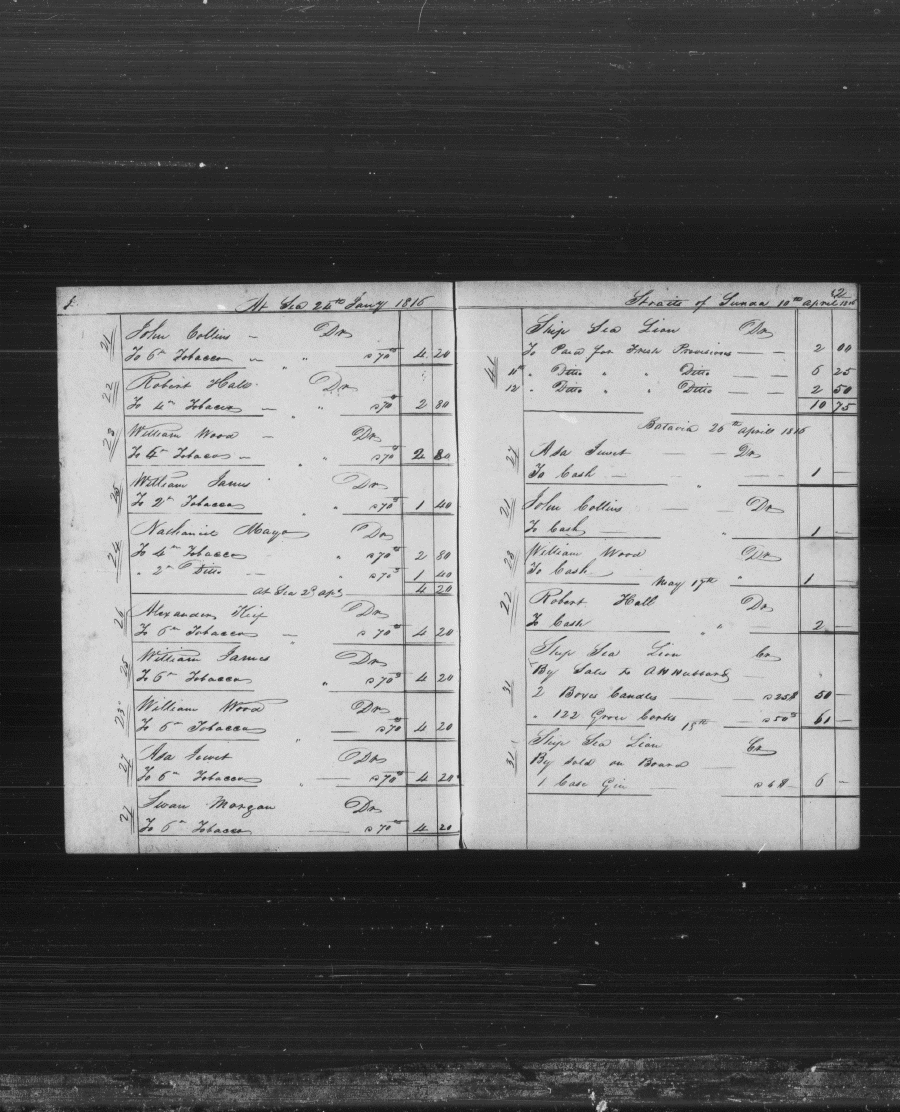 1 At Sea 25th Jany 1816
21 John Collins Dr
To 6 lb Tobacco " a 70cts 4 20
22 Robert Hall Dr
To 4 lb Tobacco " a 70cts 2 80
23 William Wood Dr
To 4 lb Tobacco " a 70cts 2 80
25 William James Dr
To 2 lb Tobacco " a 70cts 1 40
24 Nathaniel Mayo Dr
To 4 lb Tobacco " a 70cts 2 80
" 2 lb Ditto " a 70cts 1 40
At Sea 4 20
26 Alexander Dr
To 6 lb Tobacco " a 70cts 4 20
25 William James Dr
To 6 lb Tobacco " a 70cts 4 20
23 William Wood Dr
To 6 lb Tobacco a 70cts 4 20
27 Asa Jewet Dr
To 6 lb Tobacco " a 70cts 4 20
Swan Morgan Dr
To 6 lb Tobacco a 70cts 4 20
Straits of Sunda 10th April 1816 2
Ship Sea Lion Dr
To Paid for Fresh Provisions 2 00
11th " Ditto " " Ditto 6 25
12 " Ditto " " Ditto 2 50
10 75
Batavia 26th April 1816
27 Asa Jewet Dr
To Cash " 1 —
21 John Collins Dr
To Cash " 1 —
23 William Wood Dr
To Cash " 1 —
May 17th
22 Robert Hall Dr
To Cash " 2 —
31 Ship Sea Lion Cr
By Sales to A H Hubbard
2 Boxes Candles a 25$ 50 —
" 122 Groce Corks a 50cts 61 —
18th
31 Ship Sea Lion Cr
By Sold on Board
1 Case Gin a 6$ 6 —